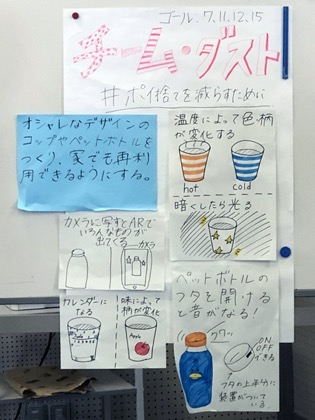 ゴール.7.11.12.15
チーム・ダスト
#ポイ捨てを減らすために
オシャレなデザインの
コップやペットボトルを
つくり、家でも再利
用できるようにする。
温度によって色、柄
が変化する
hot
cold
暗くしたら光る
カメラに写すとARで
いろんなものが
出てくる
カメラ
カレンダーに
なる
味によって
柄が変化
Apple
ペットボトルの
フタを開ける
と音がなる!
ON
OFF
できる
フタの上半分に
装置がついて
いる